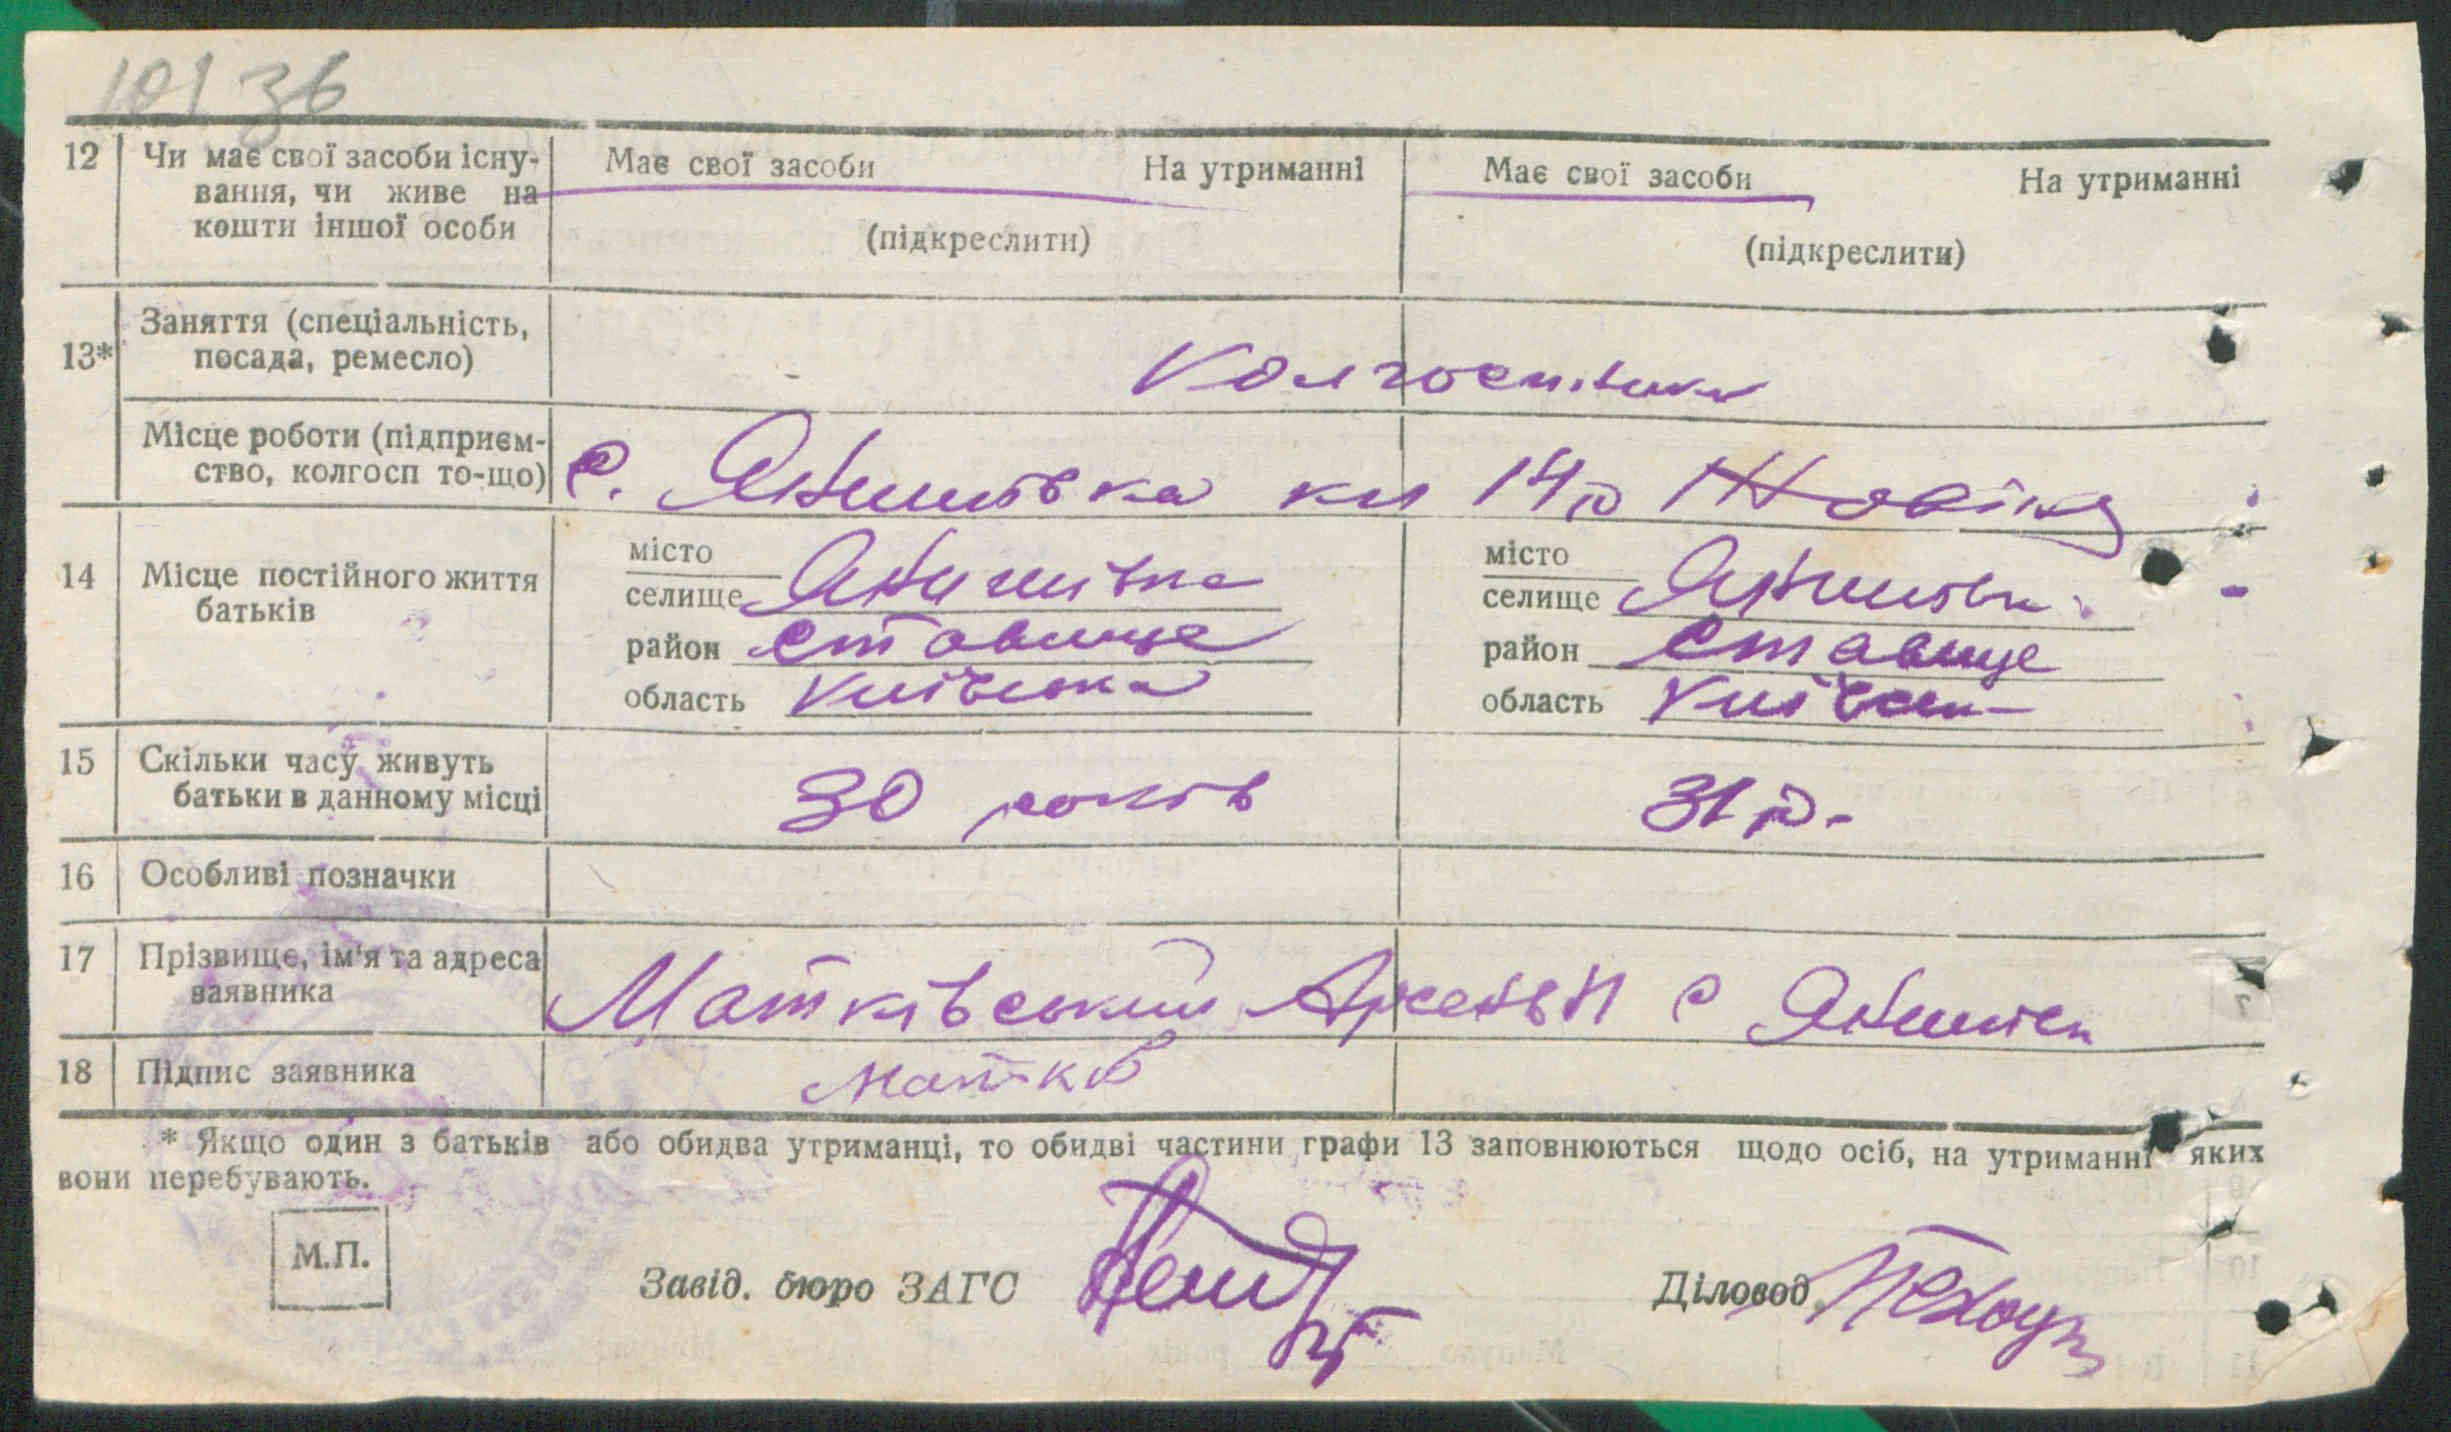 10136
12 Чи має свої засоби існу- Має свої засоби На утриманні Має свої засоби На утриманні
вання, чи живе на
кошти іншої особи (підкреслити) (підкреслити)
Заняття (спеціальність,
13* посада, ремесло) Колгоспники
Місце роботи (підприєм-
ство, колгосп то-що) с. Янишівка кл 14 р Жовтня
14 Місце постійного життя
батьків
місто
селище Янишівка
район Ставище
область Київська
місто
селище Янишівка
район Ставище
область Київськ
15 Скільки часу живуть
батьки в данному місці 30 років 31 р.
16 Особливі позначки
17 Прізвище, ім'я та адреса
заявника Матківський Арсентій с Янишівк
18 Підпис заявника Матків
* Якщо один з батьків або обидва утриманці, то обидві частини графи 13 заповнюються щодо осіб, на утриманні яких
вони перебувають.
М.П.
Завід. бюро ЗАГС
Діловод